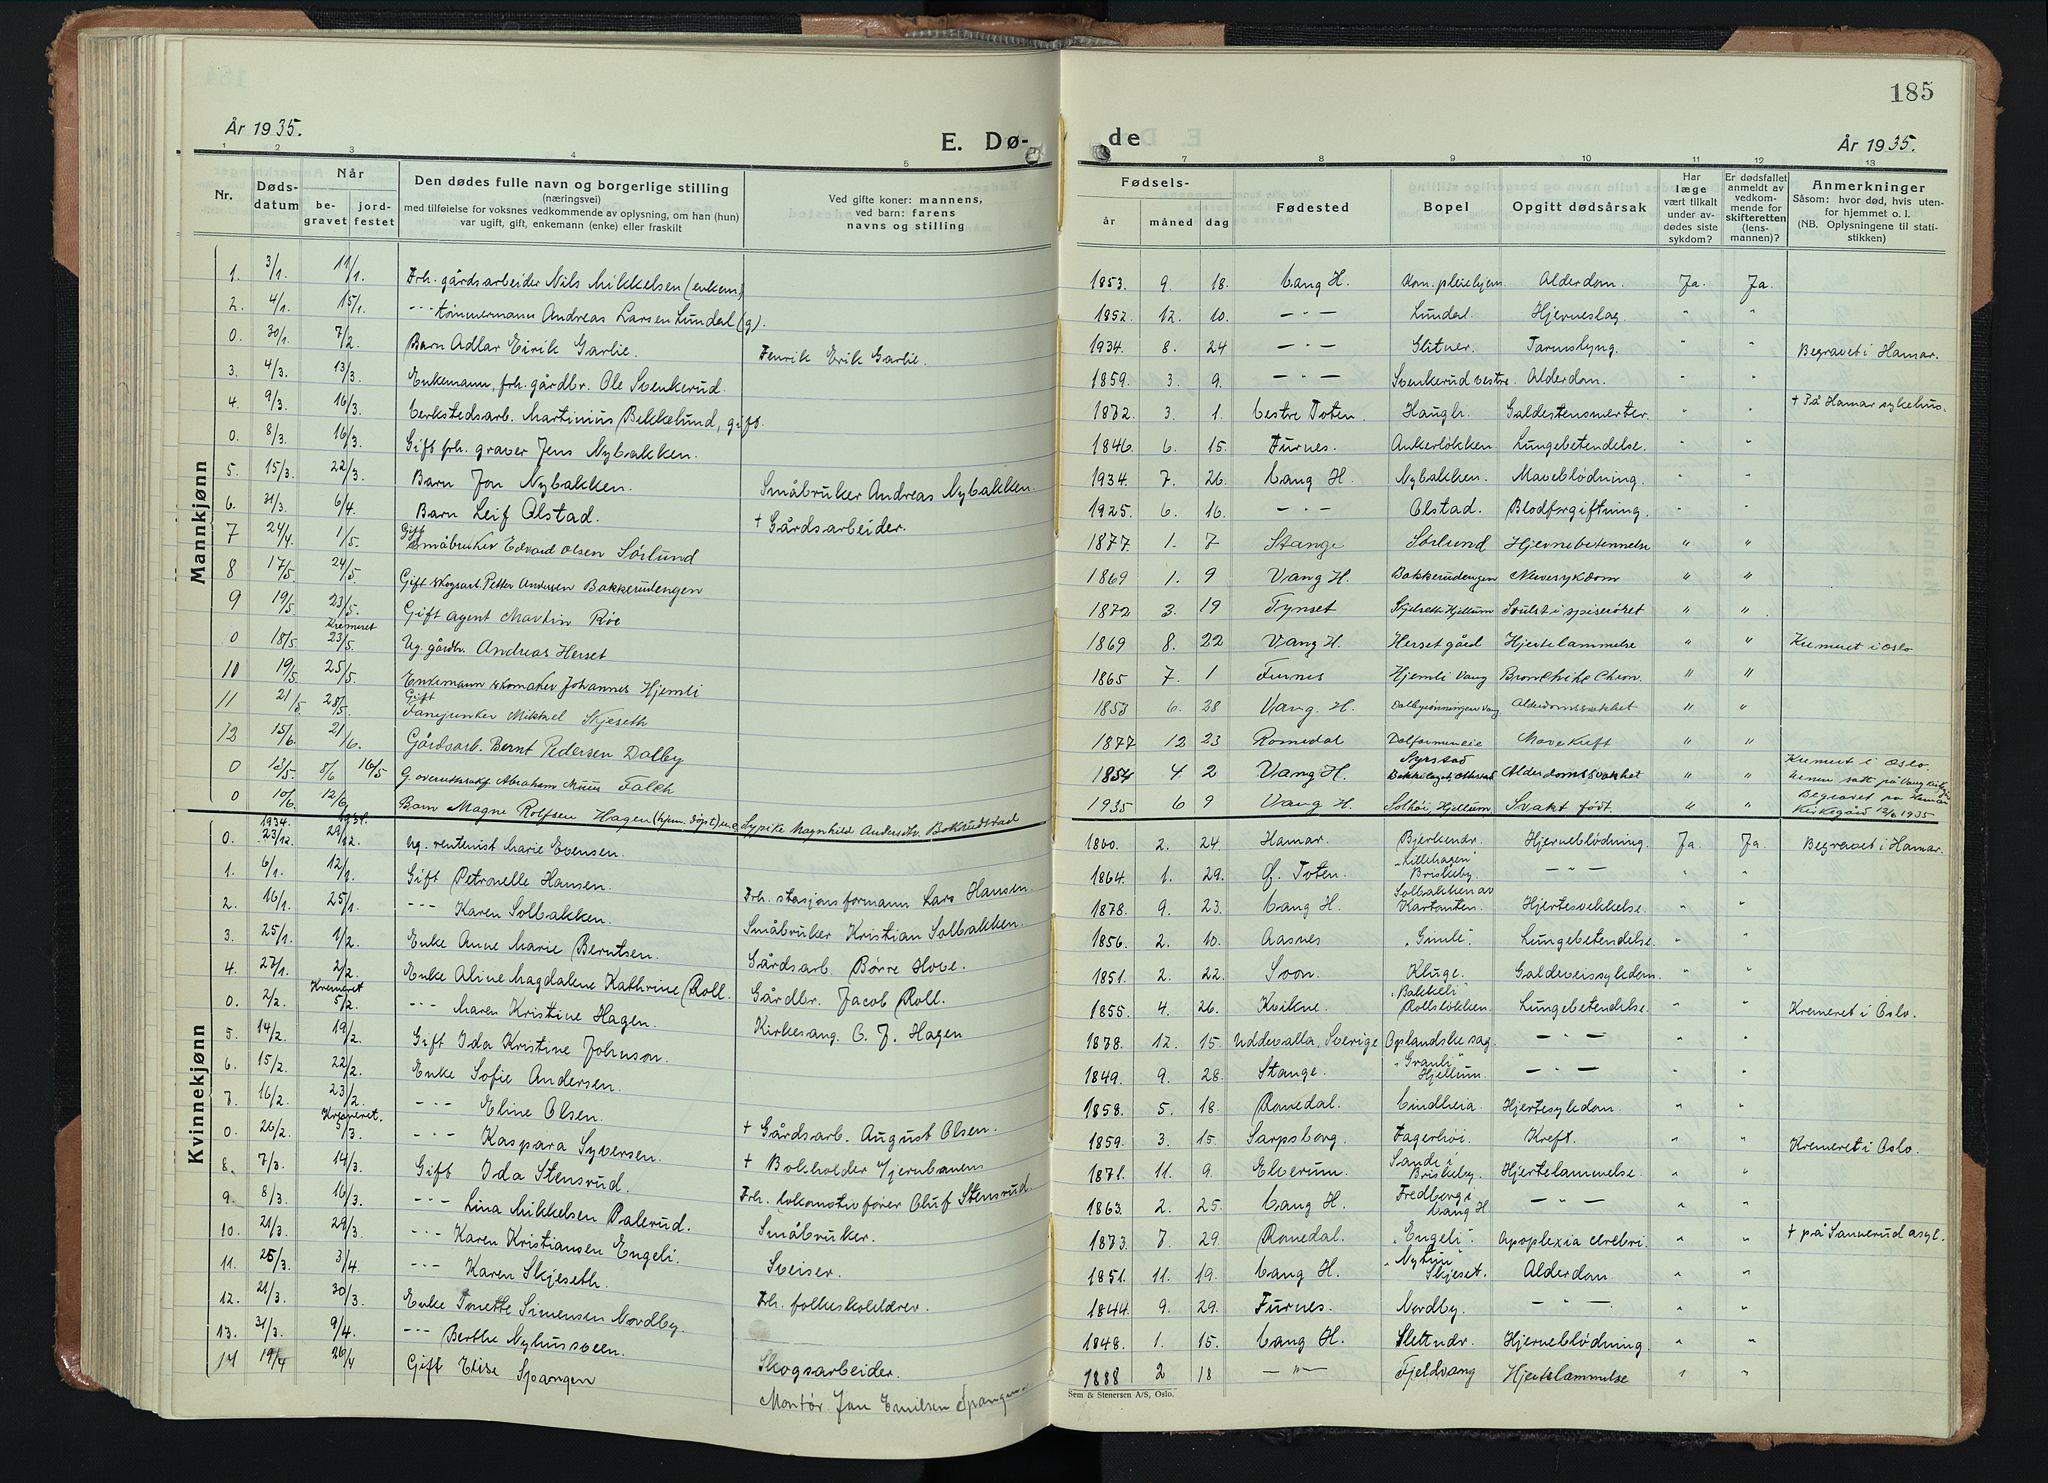 185
År 1935.
E. Dø-
de
År 1935.
1 2 3 4 5
7 8 9 10 11 12 13
Nr.
Dødsdatum
Når
begravet
jordfestet
Den dødes fulle navn og borgerlige stilling
(næringsvei)
med tilføielse for voksnes vedkommende av oplysning, om han (hun)
var ugift, gift, enkemann (enke) eller fraskilt
Ved gifte koner: mannens,
ved barn: farens
navns og stilling
Fødsels-
år måned dag
Fødested
Bopel
Opgitt dødsårsak
Har
læge
vært tilkalt
under avdødes siste
sykdom?
Er dødsfallet
anmeldt av
vedkommende for
skifteretten
(lensmannen)?
Anmerkninger
Såsom: hvor død, hvis utenfor hjemmet o. l.
(NB. Oplysningene til statistikken)
Mannkjønn
1. 3/1. 11/1. Frh. gårdsarbeider Nils Mikkelsen (enkem) 1853. 9. 18. Vang H. Kom. pleiehjem Alderdom. Ja. Ja.
2. 4/1. 15/1. -"- tømmermann Andreas Larsen Lundal (g). 1852. 12. 10. -"- Lundal. Hjerneslag. " "
0. 30/1. 7/2. Barn Adlar Eirik Garlie. Henrik Erik Garlie. 1934. 8. 24 -"- Slitner. Tarmslyng. " " Begravet i Hamar.
3. 4/3. 13/3. Enkemann, frh. gårdbr. Ole Svenkerud. 1859. 3. 9. -"- Svenkerud vestre. Alderdom. " "
4. 9/3. 16/3. Verkstedsarb. Martinius Bekkelund, gift. 1872. 3. 1. Vestre Toten. Haugli. Galdestensmerter. " " + På Hamar sykehus.
0. 8/3. 16/3. Gift frh. graver Jens Nybakken. 1846. 6. 15. Furnes. Ankerløkken Lungebetendelse. " "
5. 15/3. 22/3. Barn Jon Nybakken. Småbruker Andreas Nybakken. 1934. 7. 26. Vang H. Nybakken. Maveblødning. " "
6. 31/3. 6/4. Barn Leif Olstad. + Gårdsarbeider. 1925. 6. 16. -"- Olstad. Blodforgiftning. " "
7 24/4. 1/5. Gift Småbruker Edvard Olsen Sørlund 1877. 1. 7 Stange Sørlund Hjernebetennelse " "
8 17/5. 24/5. Gift skogsarb. Petter Andersen Bakkerudengen 1869 1. 9 Vang H. Bakkerudengen Nevesykdom " "
9 19/5. 23/5. Gift agent Martin Røe 1872 3. 19 Tynset Skjelseth Hjellum Svulst i spiserøret " "
0 18/5. Kremeret 23/5. Ug. gårdbr. Andreas Herset 1869 8. 22 Vang H. Herset gård Hjertelammelse " " Kremeret i Oslo
10 19/5. 25/5. Enkemann skomaker Johannes Hjemli 1865 7. 1 Furnes Hjemli Vang Bronchite Chron. " "
11 21/5 28/5. Gift Fanejunker Mikkel Skjeseth 1853 6. 28 Vang. H. Dalbydønningen Vang Alderdomssvakhet " "
12 15/6. 21/6. Gårdsarb. Bernt Pedersen Dalby 1877 12 23 Romedal Dalfarmeneie Mavekreft " "
0 13/5. 8/6 16/5 G. overrettssakf. Abraham Muus Falch 1854 4. 2 Vang H. Alderdomssvakhet " " Kremert i Oslo. Urnen satt på Vang kirkegd
0 10/6. 12/6 Barn Magne Rolfsen Hagen (hjem. døpt) u.e. Sypike Magnhild Andersdtr. Bakrudstad 1935 6 9 Vang H. Solhøi, Hjellum. Svakt født. " " Begravet på Hamar Kirkegård 12/6 1935
Kvinnekjønn
0. 1934. 23/12. 1934. 29/12. Ug. rentenist Marie Evensen. 1860. 2. 24. Hamar. Bjerkendr. Hjerneblødning. Ja. Ja. Begravet i Hamar.
1. 6/1. 12/1. Gift Petronelle Hansen. Frh. stasjonsformann Lars Hansen. 1864. 1. 29. Ø. Toten. "Lillehagen" Briskeby. -"- " "
2. 16/1. 25/1. -"- Karen Solbakken. Småbruker Kristian Solbakken. 1878. 9. 23. Vang H. Solbakken av Kartonten. Hjertesvekkelse. " "
3. 25/1. 1/2. Enke Anne Marie Berntsen. Gårdsarb. Børre Hove. 1856. 2. 10. Aasnes "Gimle". Lungebetendelse. " "
4. 27/1. 2/2. Enke Aline Magdalene Kathrine Roll. Gårdbr. Jacob Roll. 1851. 2. 22. Soon. Kluge. Galdeveissykdom. " "
0. 2/2. Kremeret 5/2. -"- Maren Kristine Hagen. Kirkesang. O. J. Hagen 1855. 4. 26. Kvikne. "Bakkeli" Rollsløkken. Lungebetendelse. " " Kremeret i Oslo.
5. 14/2. 19/2. Gift Ida Kristine Johnson. 1878. 12. 15. Uddevalla, Sverige Oplandske sag. -"- " "
6. 15/2. 22/2. Enke Sofie Andersen. 1849. 9. 28. Stange. "Granli" Hjellum. -"- " "
7. 16/2. 23/2. -"- Eline Olsen. + Gårdsarb. August Olsen. 1858. 5. 18. Romedal. Lindheia Hjertesykdom. " "
0. 26/2. Kremeret. 5/3. -"- Kaspara Syversen. + Bokholder Hjernbanens 1859. 3. 15. Sarpsborg. Fagerhøi. Kreft. " " Kremeret i Oslo.
8. 7/3. 14/3. Gift Ida Stensrud. Frh. lokomotivfører Oluf Stensrud. 1871. 11. 9. Elverum. Sande i Briskeby. Hjertelammelse. " "
9. 8/3. 16/3. -"- Lina Mikkelsen Palerud. Småbruker. 1863. 2. 25. Vang H. Fredberg i Vang H. -"- " "
10. 21/3. 29/3. -"- Karen Kristiansen Engeli. Sveiser. 1873. 7. 29. Romedal. "Engeli". Apoplexia cerebri. " " + på Sannerud asyl.
11. 25/3. 3/4. -"- Karen Skjeseth. Frh. folkeskolelærer. 1851. 11. 19. Vang H. "Nytun" Skjeset. Alderdom. " "
12. 21/3. 30/3. Enke Tonette Simensen Nordby. 1844. 9. 29. Furnes. Nordby. -"- " "
13. 31/3. 9/4. -"- Berthe Nyhusveen. Skogsarbeider. 1848. 1. 15. Vang H. Slettndr. Hjerneblødning. " "
14 19/4 26/4 Gift Elise Spangen Montør Jon Emilsen Spangen 1888 2 18 -"- Fjeldvang Hjertelammelse " "
Sem & Stenersen A/S, Oslo.